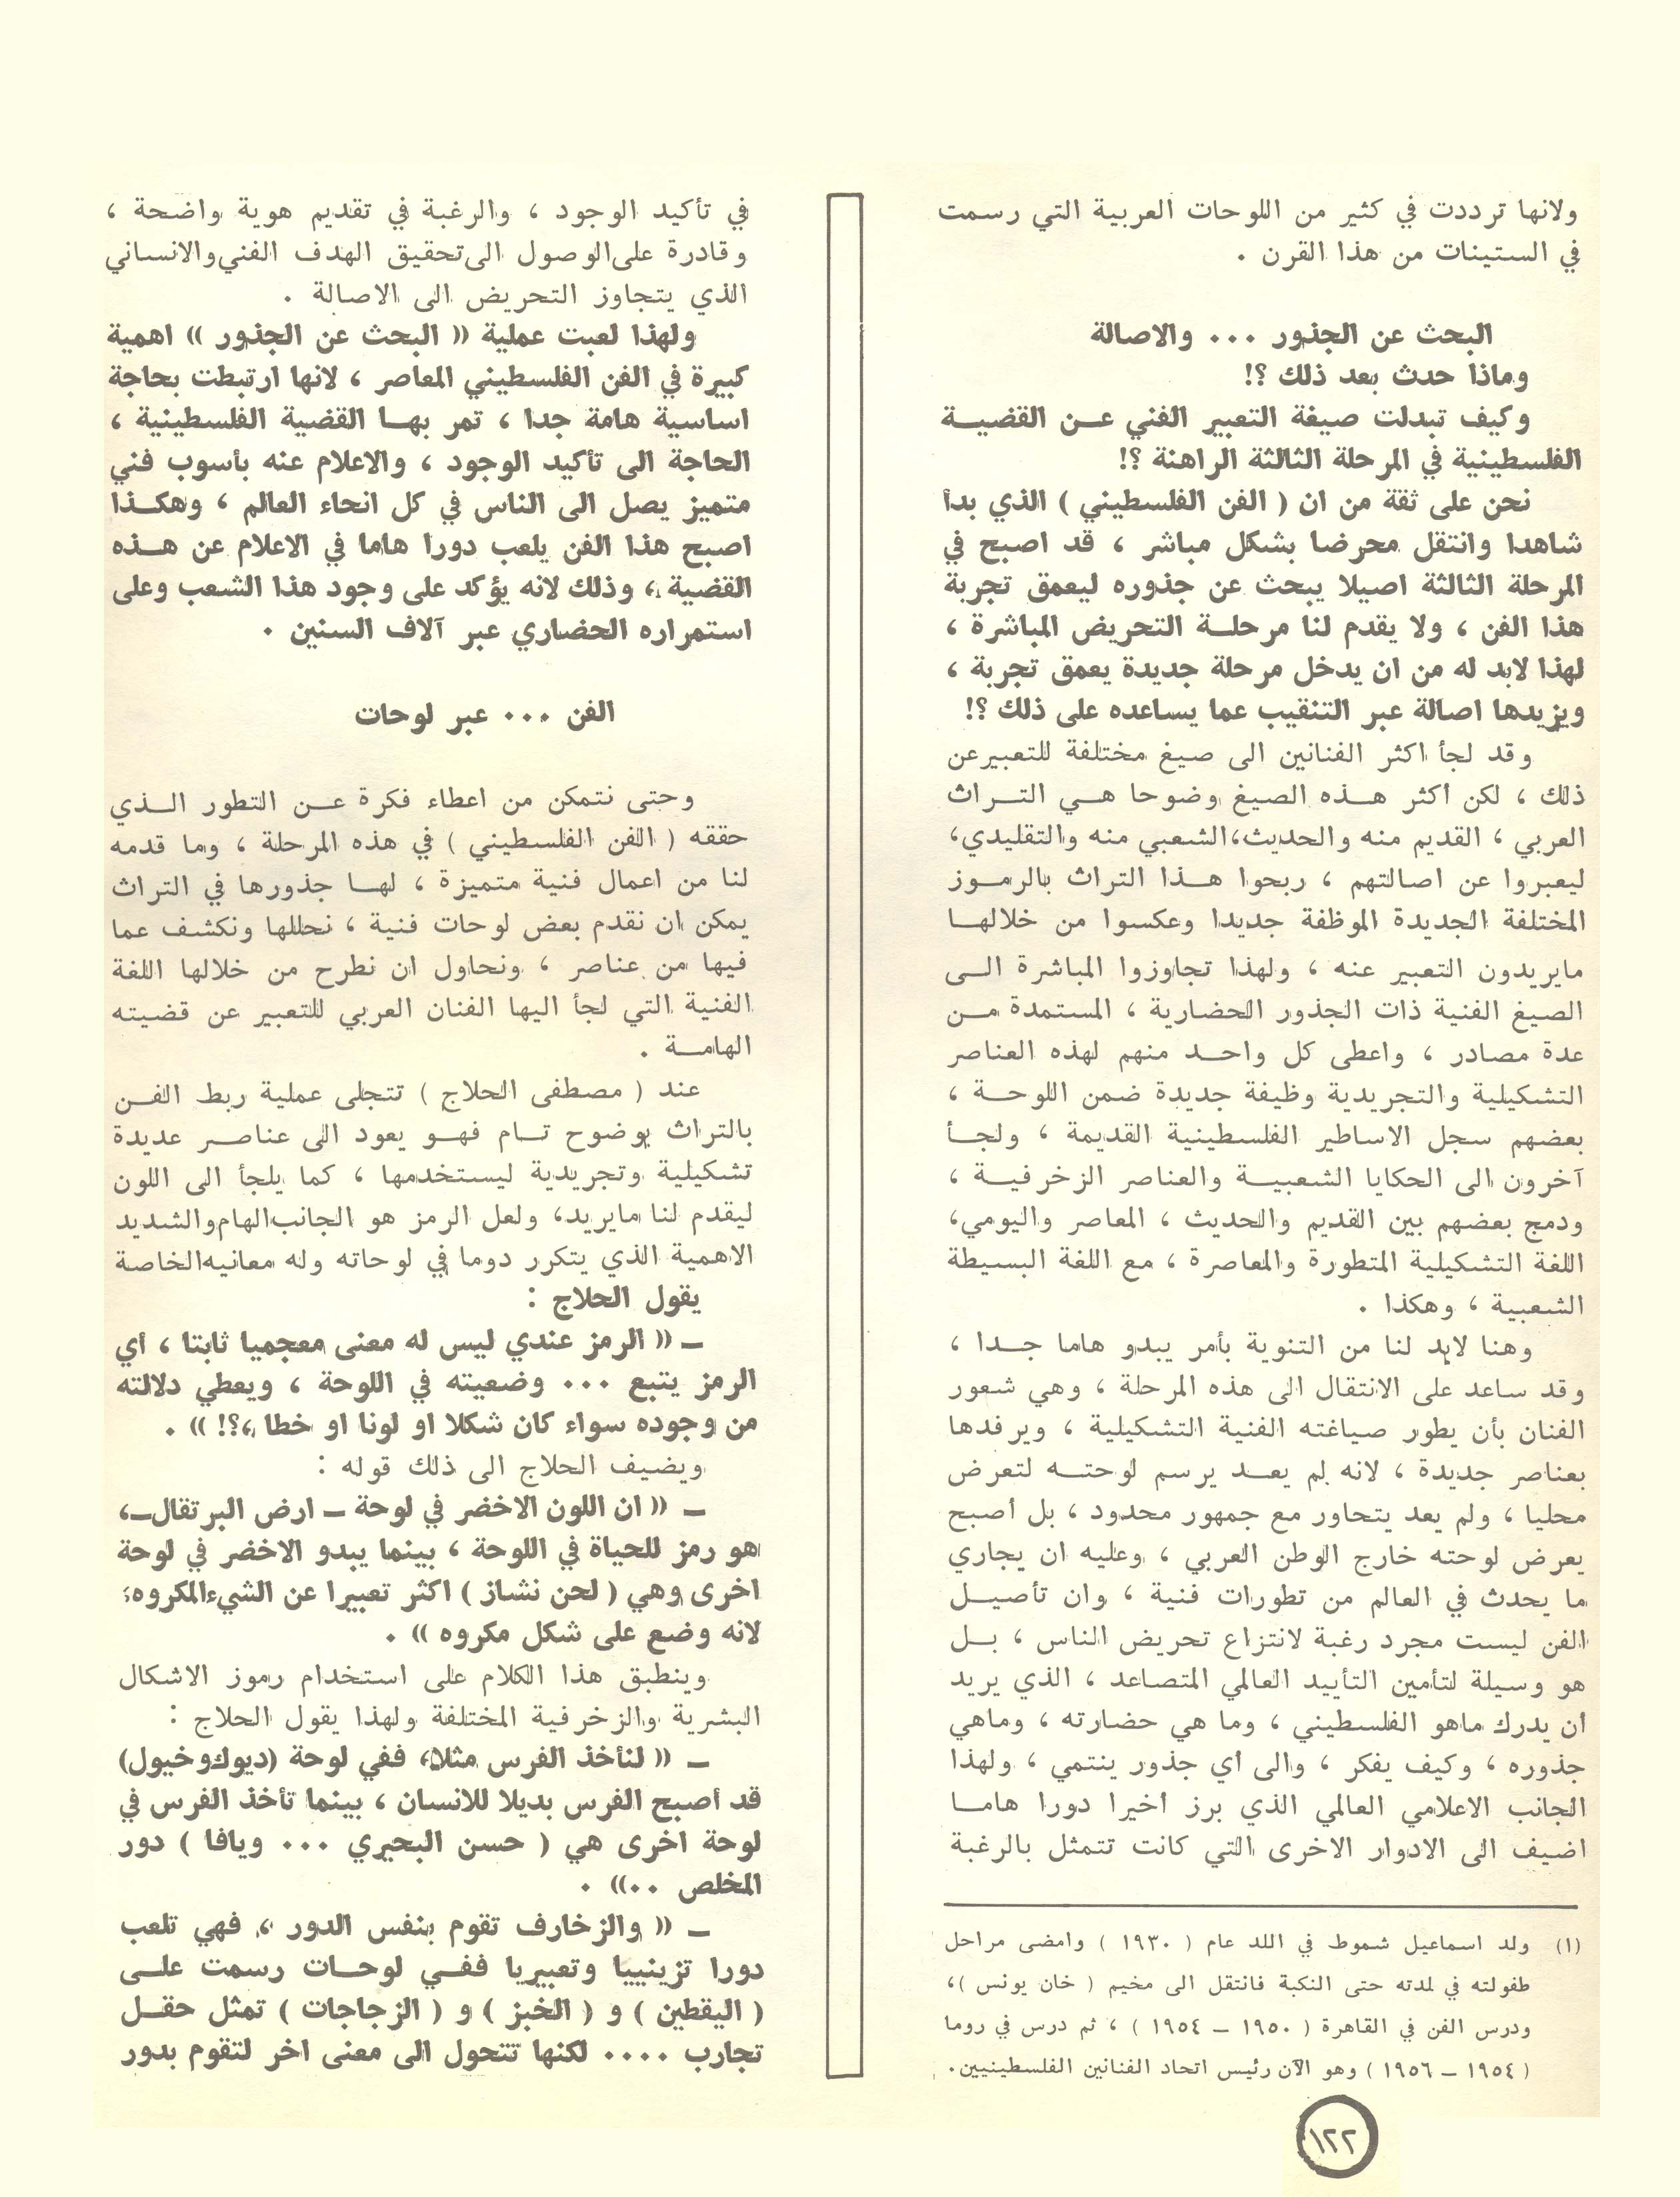 ولانها ترددت في كثير من اللوحات العربية التي رسمت
في الستينات من هذا القرن .
البحث عن الجذور ... والاصالة
وماذا حدث بعد ذلك ؟!
وكيف تبدلت صيغة التعبير الفني عن القضية
الفلسطينية في المرحلة الثالثة الراهنة ؟!
نحن على ثقة من ان ( الفن الفلسطيني ) الذي بدأ
شاهدا وانتقل محرضا بشكل مباشر ، قد اصبح في
المرحلة الثالثة اصيلا يبحث عن جذوره ليعمق تجربة
هذا الفن ، ولا يقدم لنا مرحلة التحريض المباشرة ،
لهذا لابد له من ان يدخل مرحلة جديدة يعمق تجربة ،
ويزيدها اصالة عبر التنقيب عما يساعده على ذلك ؟!
وقد لجأ اكثر الفنانين الى صيغ مختلفة للتعبير عن
ذلك ، لكن أكثر هذه الصيغ وضوحا هي التراث
العربي ، القديم منه والحديث، الشعبي منه والتقليدي،
ليعبروا عن اصالتهم ، ربحوا هذا التراث بالرموز
المختلفة الجديدة الموظفة جديدا وعكسوا من خلالها
مايريدون التعبير عنه ، ولهذا تجاوزوا المباشرة الى
الصيغ الفنية ذات الجذور الحضارية ، المستمدة من
عدة مصادر ، واعطى كل واحد منهم لهذه العناصر
التشكيلية والتجريدية وظيفة جديدة ضمن اللوحة ،
بعضهم سجل الاساطير الفلسطينية القديمة ، ولجأ
آخرون الى الحكايا الشعبية والعناصر الزخرفية ،
ودمج بعضهم بين القديم والحديث ، المعاصر واليومي،
اللغة التشكيلية المتطورة والمعاصرة ، مع اللغة البسيطة
الشعبية ، وهكذا .
وهنا لابد لنا من التنوية بأمر يبدو هاما جدا ،
وقد ساعد على الانتقال الى هذه المرحلة ، وهي شعور
الفنان بأن يطور صياغته الفنية التشكيلية ، ويرفدها
بعناصر جديدة ، لانه لم يعد يرسم لوحته لتعرض
محليا ، ولم يعد يتحاور مع جمهور محدود ، بل أصبح
يعرض لوحته خارج الوطن العربي ، وعليه ان يجاري
ما يحدث في العالم من تطورات فنية ، وان تأصيل
الفن ليست مجرد رغبة لانتزاع تحريض الناس ، بل
هو وسيلة لتأمين التأييد العالمي المتصاعد ، الذي يريد
أن يدرك ماهو الفلسطيني ، وما هي حضارته ، وماهي
جذوره ، وكيف يفكر ، والى أي جذور ينتمي ، ولهذا
الجانب الاعلامي العالمي الذي برز أخيرا دورا هاما
اضيف الى الادوار الاخرى التي كانت تتمثل بالرغبة
(١) ولد اسماعيل شموط في اللد عام ( ١٩٣٠ ) وامضى مراحل
طفولته في لمدته حتى النكبة فانتقل الى مخيم ( خان يونس )،
ودرس الفن في القاهرة ( ١٩٥٠ – ١٩٥٤ ) ، ثم درس في روما
( ١٩٥٤ – ١٩٥٦ ) وهو الآن رئيس اتحاد الفنانين الفلسطينيين.
في تأكيد الوجود ، والرغبة في تقديم هوية واضحة ،
وقادرة على الوصول الى تحقيق الهدف الفني والانساني
الذي يتجاوز التحريض الى الاصالة .
ولهذا لعبت عملية (( البحث عن الجذور )) اهمية
كبيرة في الفن الفلسطيني المعاصر ، لانها ارتبطت بحاجة
اساسية هامة جدا ، تمر بها القضية الفلسطينية ،
الحاجة الى تأكيد الوجود ، والاعلام عنه بأسوب فني
متميز يصل الى الناس في كل انحاء العالم ، وهكذا
اصبح هذا الفن يلعب دورا هاما في الاعلام عن هذه
القضية ، وذلك لانه يؤكد على وجود هذا الشعب وعلى
استمراره الحضاري عبر آلاف السنين .
الفن ... عبر لوحات
وحتى نتمكن من اعطاء فكرة عن التطور الذي
حققه ( الفن الفلسطيني ) في هذه المرحلة ، وما قدمه
لنا من اعمال فنية متميزة ، لها جذورها في التراث
يمكن ان نقدم بعض لوحات فنية ، نحللها ونكشف عما
فيها من عناصر ، ونحاول ان نطرح من خلالها اللغة
الفنية التي لجأ اليها الفنان العربي للتعبير عن قضيته
الهامة .
عند ( مصطفى الحلاج ) تتجلى عملية ربط الفن
بالتراث بوضوح تام فهو يعود الى عناصر عديدة
تشكيلية وتجريدية ليستخدمها ، كما يلجأ الى اللون
ليقدم لنا مايريد، ولعل الرمز هو الجانب الهام والشديد
الاهمية الذي يتكرر دوما في لوحاته وله معانيه الخاصة
يقول الحلاج :
– (( الرمز عندي ليس له معنى معجميا ثابتا ، أي
الرمز يتبع ... وضعيته في اللوحة ، ويعطي دلالته
من وجوده سواء كان شكلا او لونا او خطا ،؟! )) .
ويضيف الحلاج الى ذلك قوله :
– (( ان اللون الاخضر في لوحة – ارض البرتقال–،
هو رمز للحياة في اللوحة ، بينما يبدو الاخضر في لوحة
اخرى وهي ( لحن نشاز ) اكثر تعبيرا عن الشيء المكروه؛
لانه وضع على شكل مكروه )) .
وينطبق هذا الكلام على استخدام رموز الاشكال
البشرية والزخرفية المختلفة ولهذا يقول الحلاج :
– (( لنأخذ الفرس مثلا، ففي لوحة (ديوك وخيول)
قد أصبح الفرس بديلا للانسان ، بينما تأخذ الفرس في
لوحة اخرى هي ( حسن البحيري ... ويافا ) دور
المخلص ..)) .
– (( والزخارف تقوم بنفس الدور ، فهي تلعب
دورا تزينييا وتعبيريا ففي لوحات رسمت على
( اليقطين ) و ( الخبز ) و ( الزجاجات ) تمثل حقل
تجارب .... لكنها تتحول الى معنى اخر لتقوم بدور
١٢٢